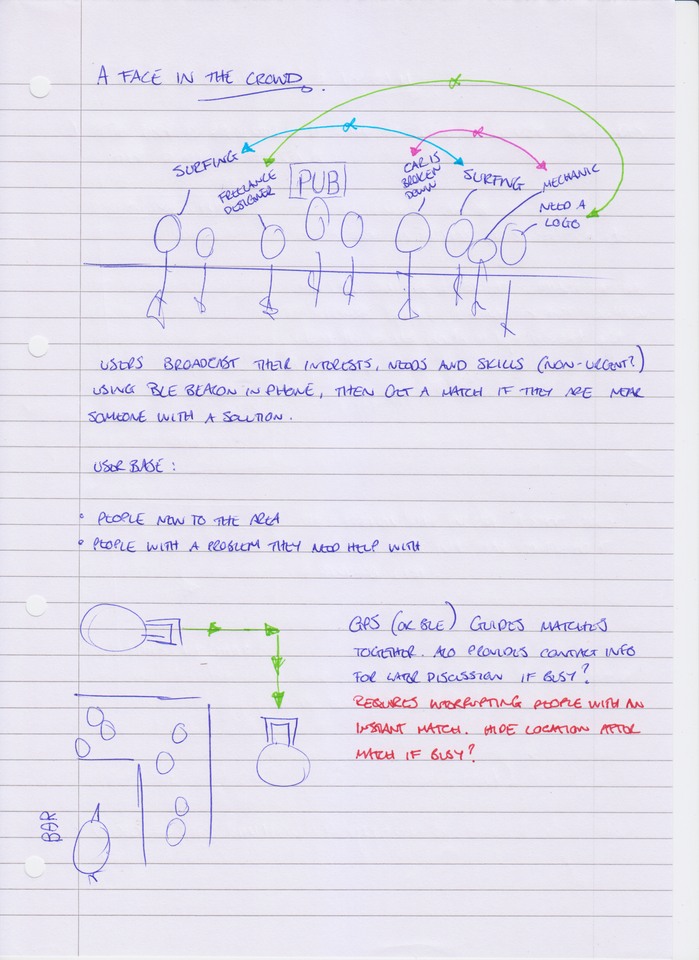 A FACE IN THE CROWD.
SURFING
FREELANCE
DESIGNER
PUB
CAR IS
BROKEN
DOWN
SURFING
MECHANIC
NEED A
LOGO
USERS BROADCAST THEIR INTERESTS, NEEDS AND SKILLS (NON-URGENT?)
USING BLE BEACON IN PHONE, THEN GET A MATCH IF THEY ARE NEAR
SOMEONE WITH A SOLUTION.
USER BASE:
• PEOPLE NEW TO THE AREA
• PEOPLE WITH A PROBLEM THEY NEED HELP WITH
GPS (OR BLE) GUIDES MATCHES
TOGETHER. ALSO PROVIDES CONTACT INFO
FOR LATER DISCUSSION IF BUSY?
REQUIRES INTERRUPTING PEOPLE WITH AN
INSTANT MATCH. HIDE LOCATION AFTER
MATCH IF BUSY?
BAR